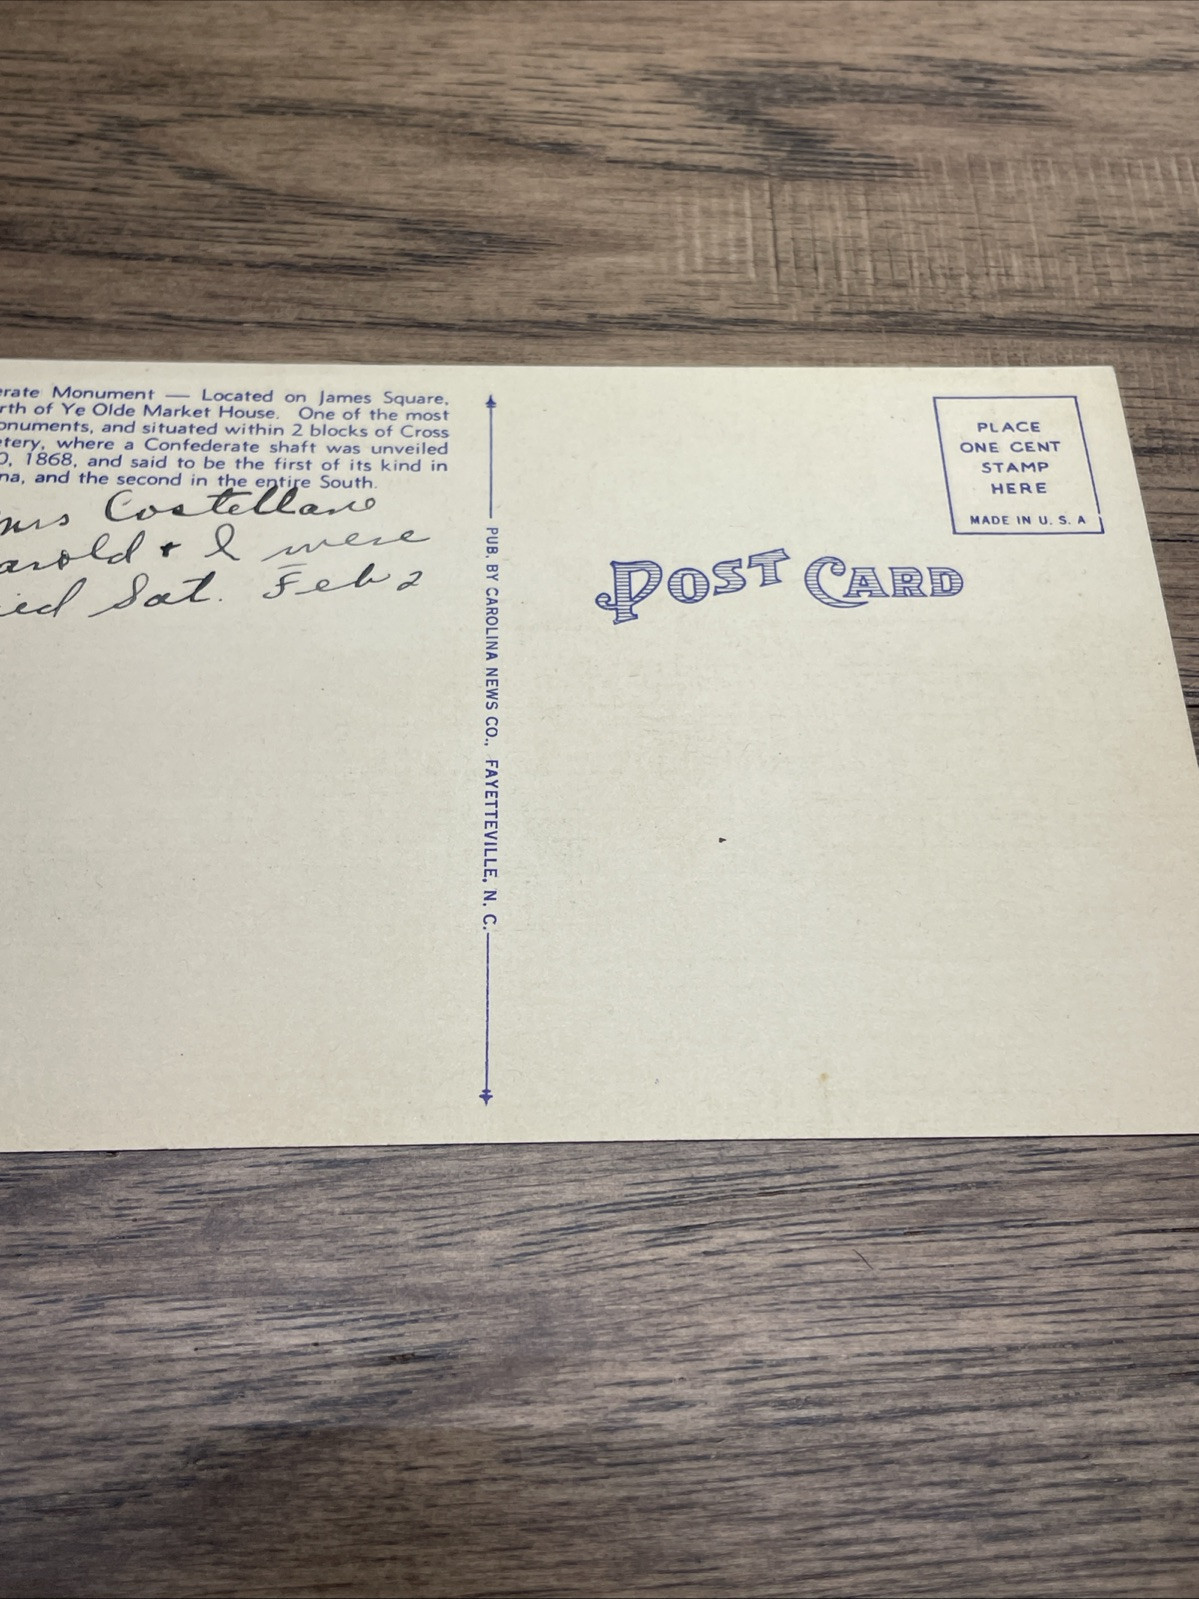 erate Monument — Located on James Square,
rth of Ye Olde Market House. One of the most
onuments, and situated within 2 blocks of Cross
etery, where a Confederate shaft was unveiled
0, 1868, and said to be the first of its kind in
na, and the second in the entire South.
mrs Costellano
arold + I were
ied Sat. Feb 2
PUB. BY CAROLINA NEWS CO., FAYETTEVILLE, N. C.
POST CARD
PLACE
ONE CENT
STAMP
HERE
MADE IN U. S. A